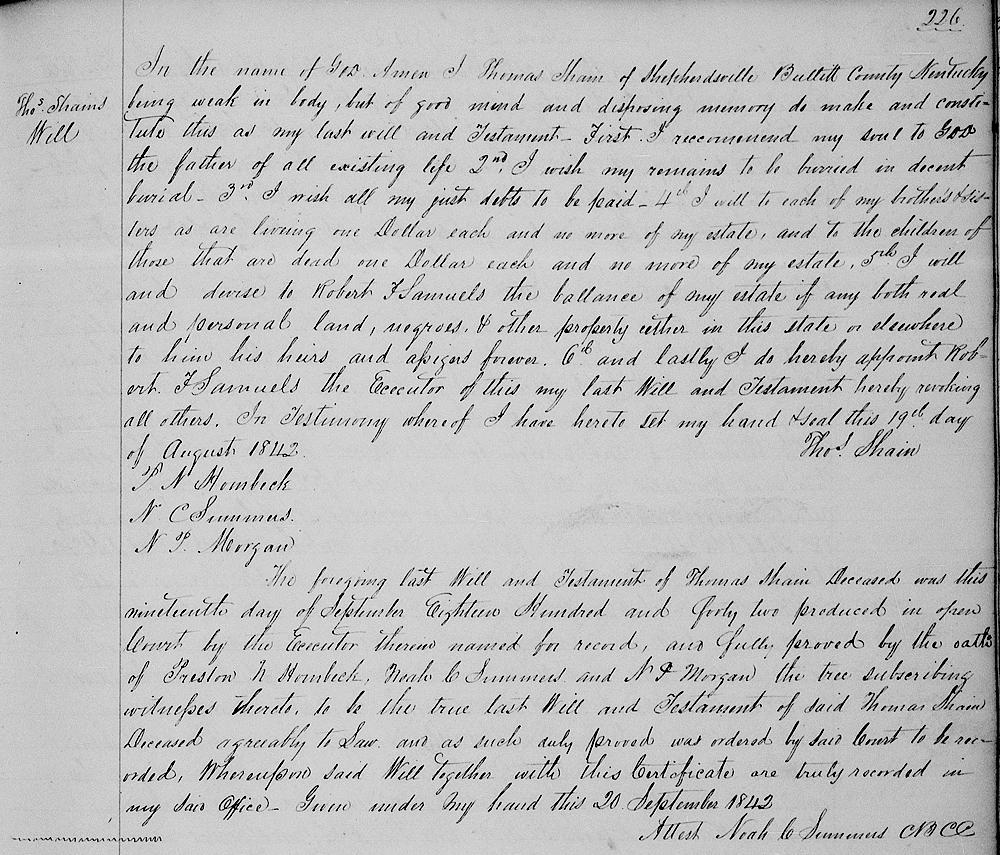 226
Thos. Shains
Will
In the name of God Amen I Thomas Shain of Shepherdsville Bullitt County Kentucky
being weak in body, but of good mind and disposing memory do make and consti-
tute this as my last will and Testament - First. I reccommend my soul to God
the father of all existing life 2nd. I wish my remains to be burried in decent
burial - 3rd. I wish all my just debts to be paid - 4th I will to each of my brothers & sis-
ters as are liveing one Dollar each and no more of my estate, and to the children of
those that are dead one Dollar each and no more of my estate. 5th I will
and devise to Robert F Samuels the ballance of my estate if any both real
and personal land, negroes, & other property either in this state or elsewhere
to him his heirs and assigns forever. 6th and lastly I do hereby appoint Rob-
ert. F Samuels the Executor of this my last Will and Testament hereby revoking
all others. In Testimony whereof I have hereto set my hand & seal this 19th day
of August 1842. Thos. Shain
P N Hornbeck
N. C Summers.
N P. Morgan
The foregoing last Will and Testament of Thomas Shain Deceased was this
nineteenth day of September Eighteen Hundred and forty two produced in open
Court by the Executor therein named for record, and fully proved by the oaths
of Preston N Hornbeck, Noah C Summers and N P Morgan the tree subscribing
witnesses thereto, to be the true last Will and Testament of said Thomas Shain
Deceased agreeably to Law. and as such duly proved was ordered by said Court to be rec-
orded, Whereupon said Will together with this Certificate are truly recorded in
my said Office - Given under my hand this 20 September 1842
Attest Noah C Summers CBCC